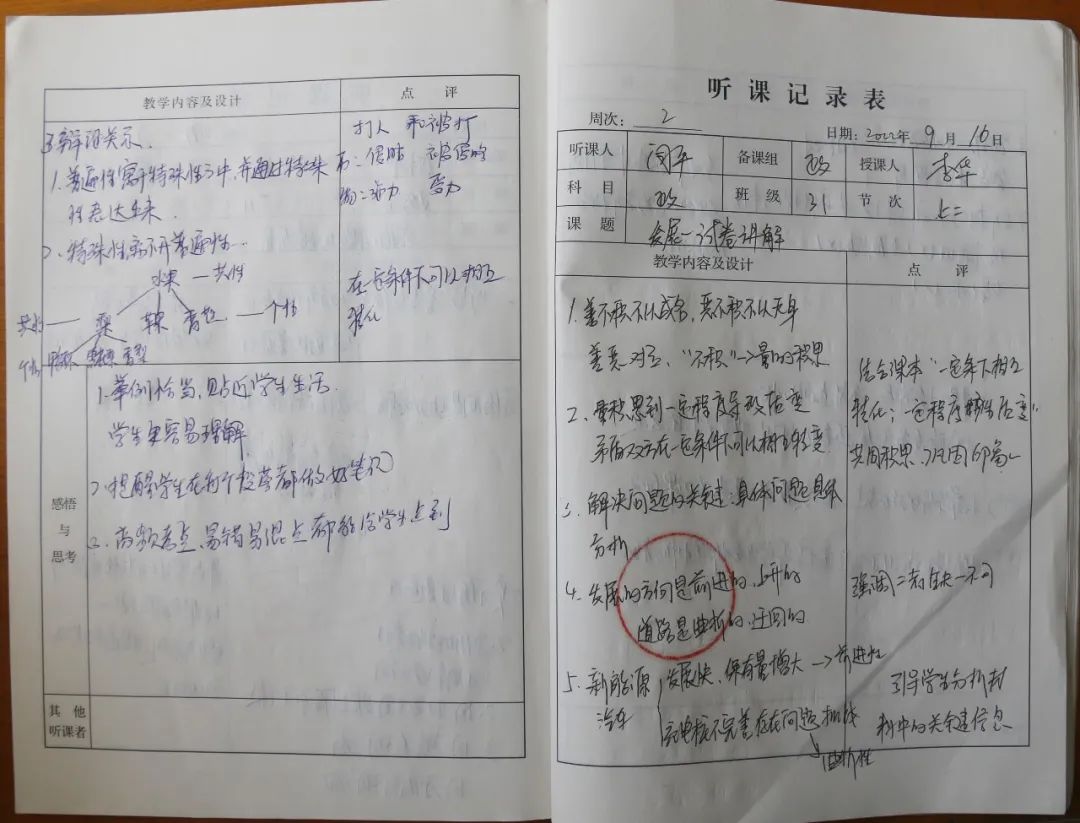 教学内容及设计
点 评
3.辩证关系.
1.普遍性寓于特殊性之中,并通过特殊
性表达出来.
2、特殊性离不开普遍性.
水果 — 共性
梨 苹果 香蕉 — 个性
打人 和被打
动力 受力
在一定条件下可以相互
转化
感悟
与
思考
1.举例恰当,贴近学生生活.
学生更容易理解
2.提醒学生在打个投屏都做好笔记
3.高频考点、易错易混点都能给学生点到
其 他
听课者
听 课 记 录 表
周次: 2
日期: 2022年 9 月 16 日
听课人 闵平 备课组 政 授课人 李华
科 目 政 班 级 31 节 次 上二
课 题 发展—试卷讲解
教学内容及设计
点 评
1.善不积不以成名,恶不积不以灭身
善恶对立,“不积”→量的积累
2、量积累到一定程度导致质变
矛盾双方在一定条件下可以相互转变
3、解决问题的关键:具体问题具体
分析
4.发展的方向是前进的、上升的
道路是曲折的、迂回的
5、新能源
汽车
发展快、保有量增大 → 前进性
充电桩不完善存在问题
曲折性
结合课本“一定条件下相互
转化;一定程度 质变”
共同积累、巩固
强调二者缺一不可
引导学生分析材
料中的关键信息